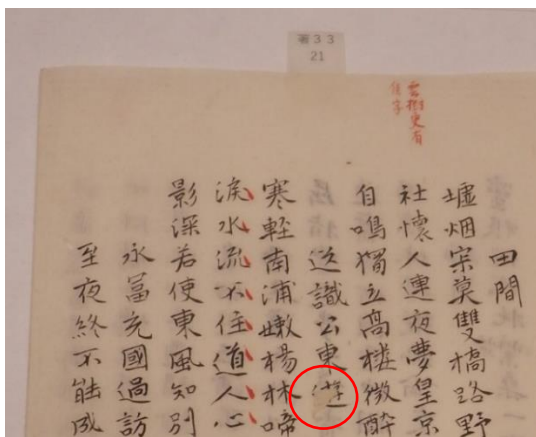 著33
21
田間
墟烟宗莫雙橋路野
社懷人連夜夢皇京
自鳴獨立高樓微酔
送識公東遊
寒輕南浦嫩楊林啼
水流不住道人心
影深若使東風知別
永冨充國過訪
至夜終不能成